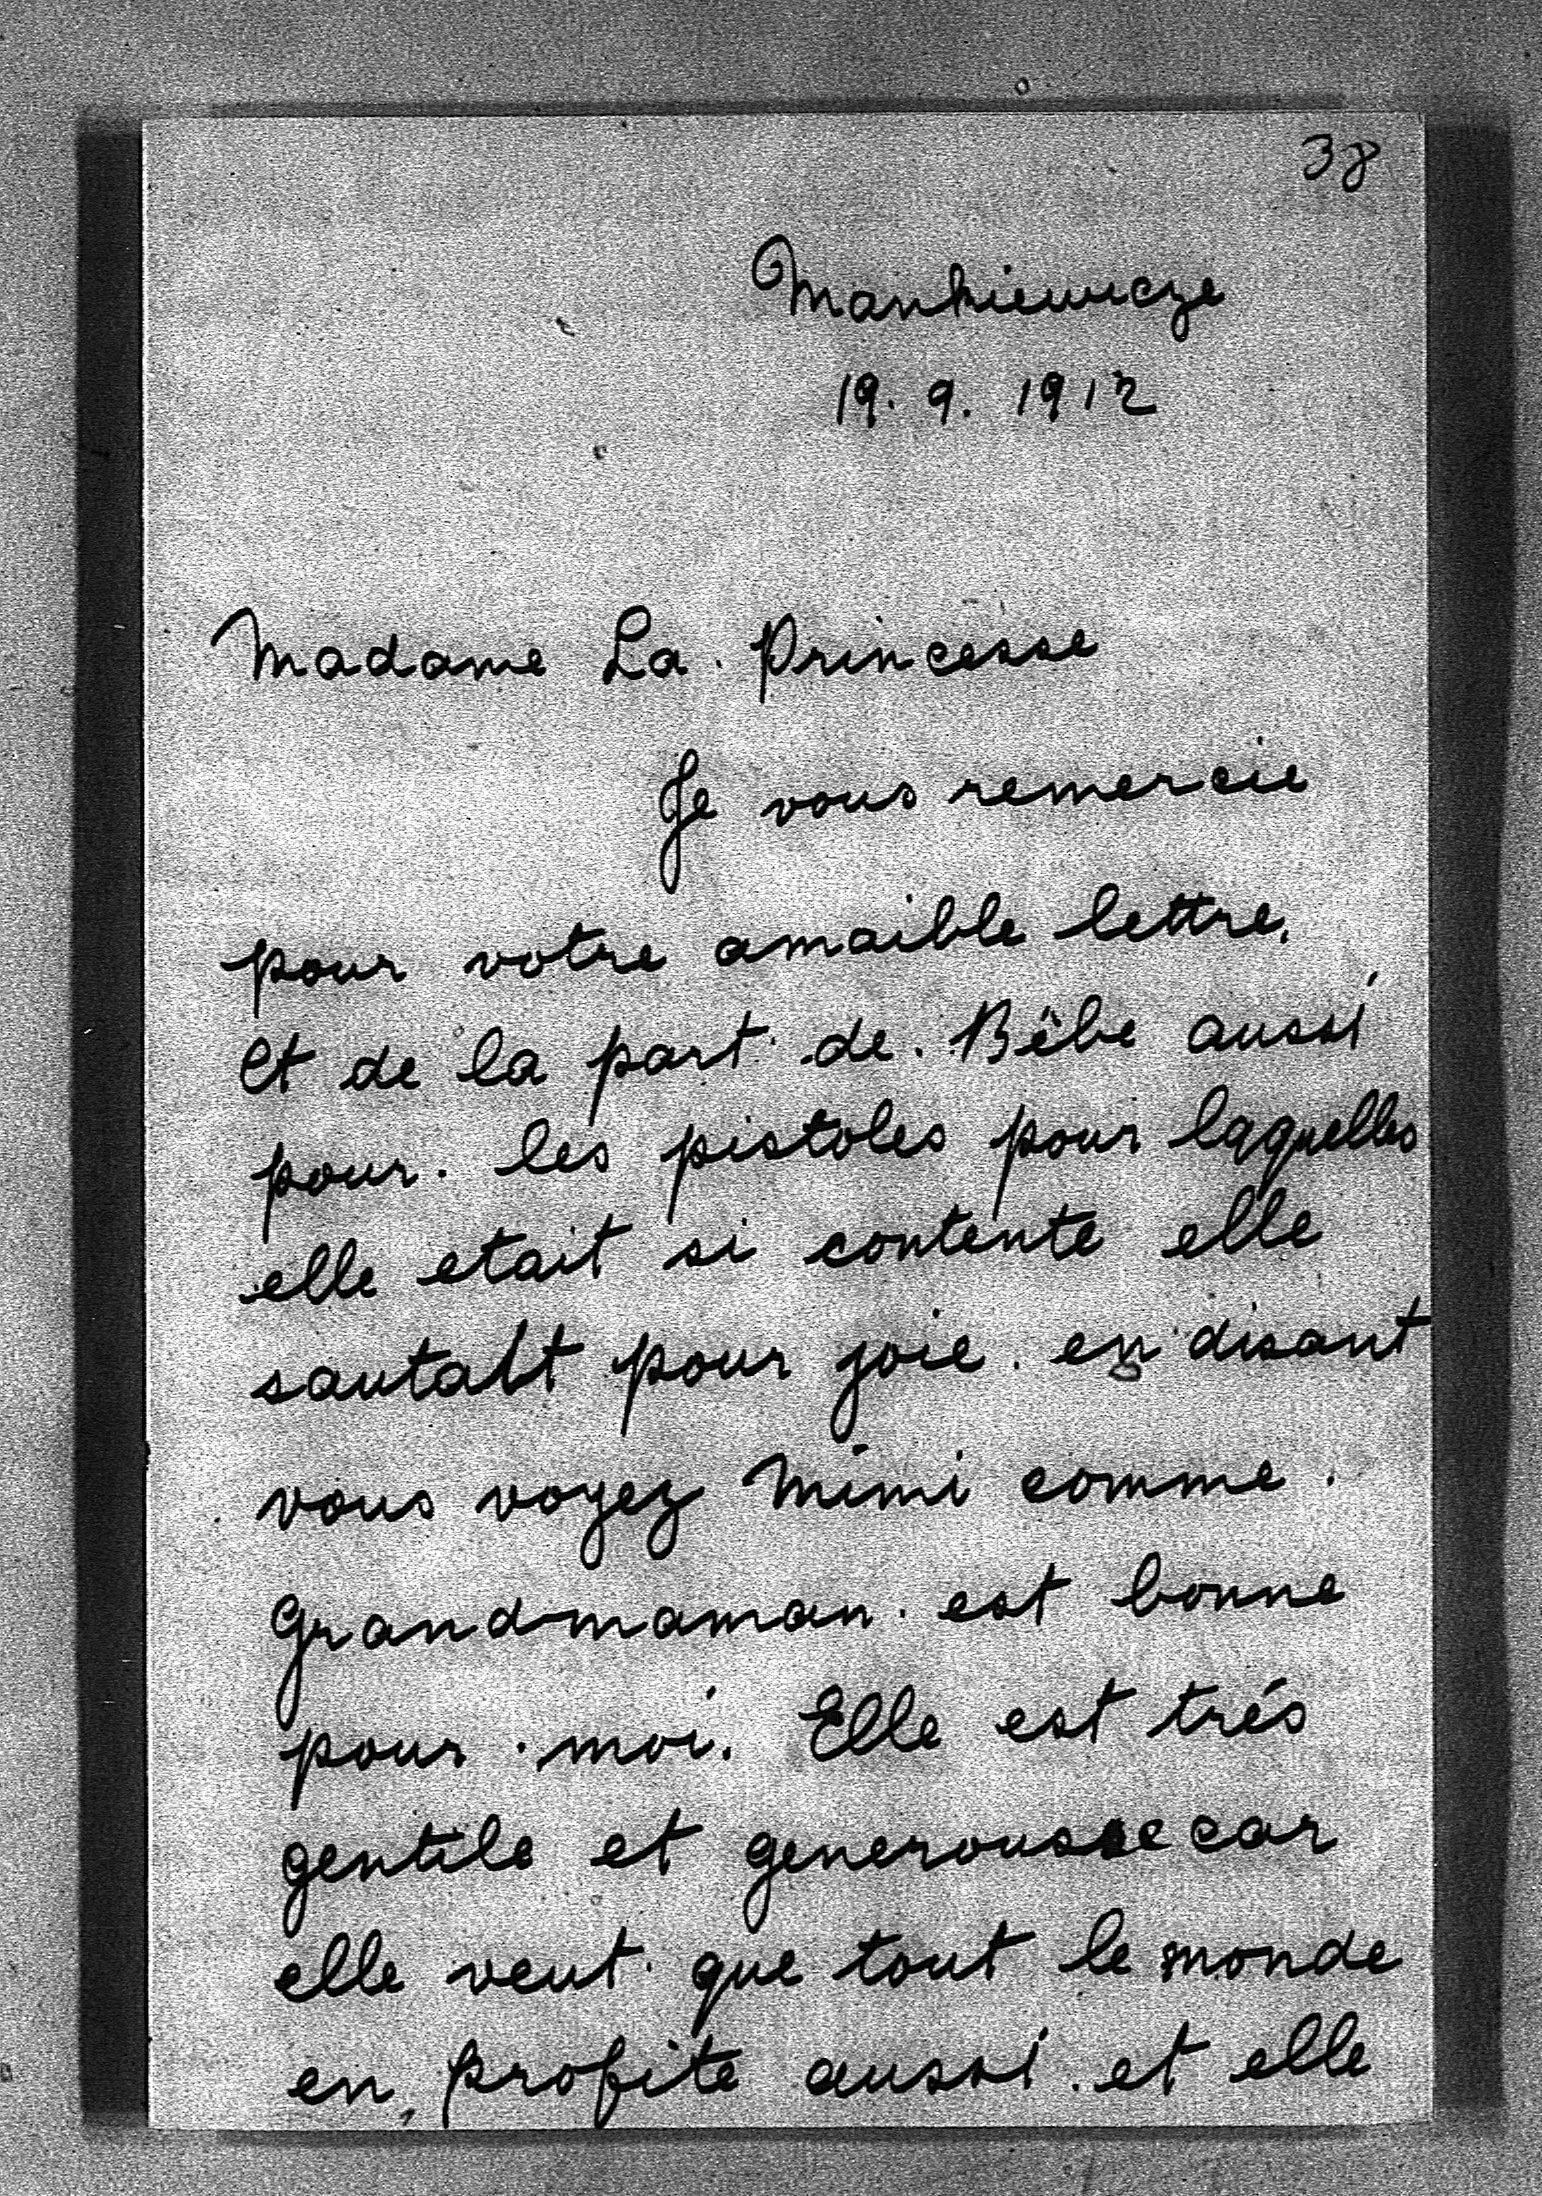 38
Mankiewicze
19. 9. 1912
Madame La Princesse
Je vous remercie
pour votre amaible lettre.
Et de la part de Bêbe aussi
pour les pistoles pour laquelles
elle etait si contente elle
sautait pour joie en disant
vous voyez Mimi comme
Grandmaman est bonne
pour moi. Elle est trés
gentile et generousse car
elle veut que tout le monde
en profite aussi et elle